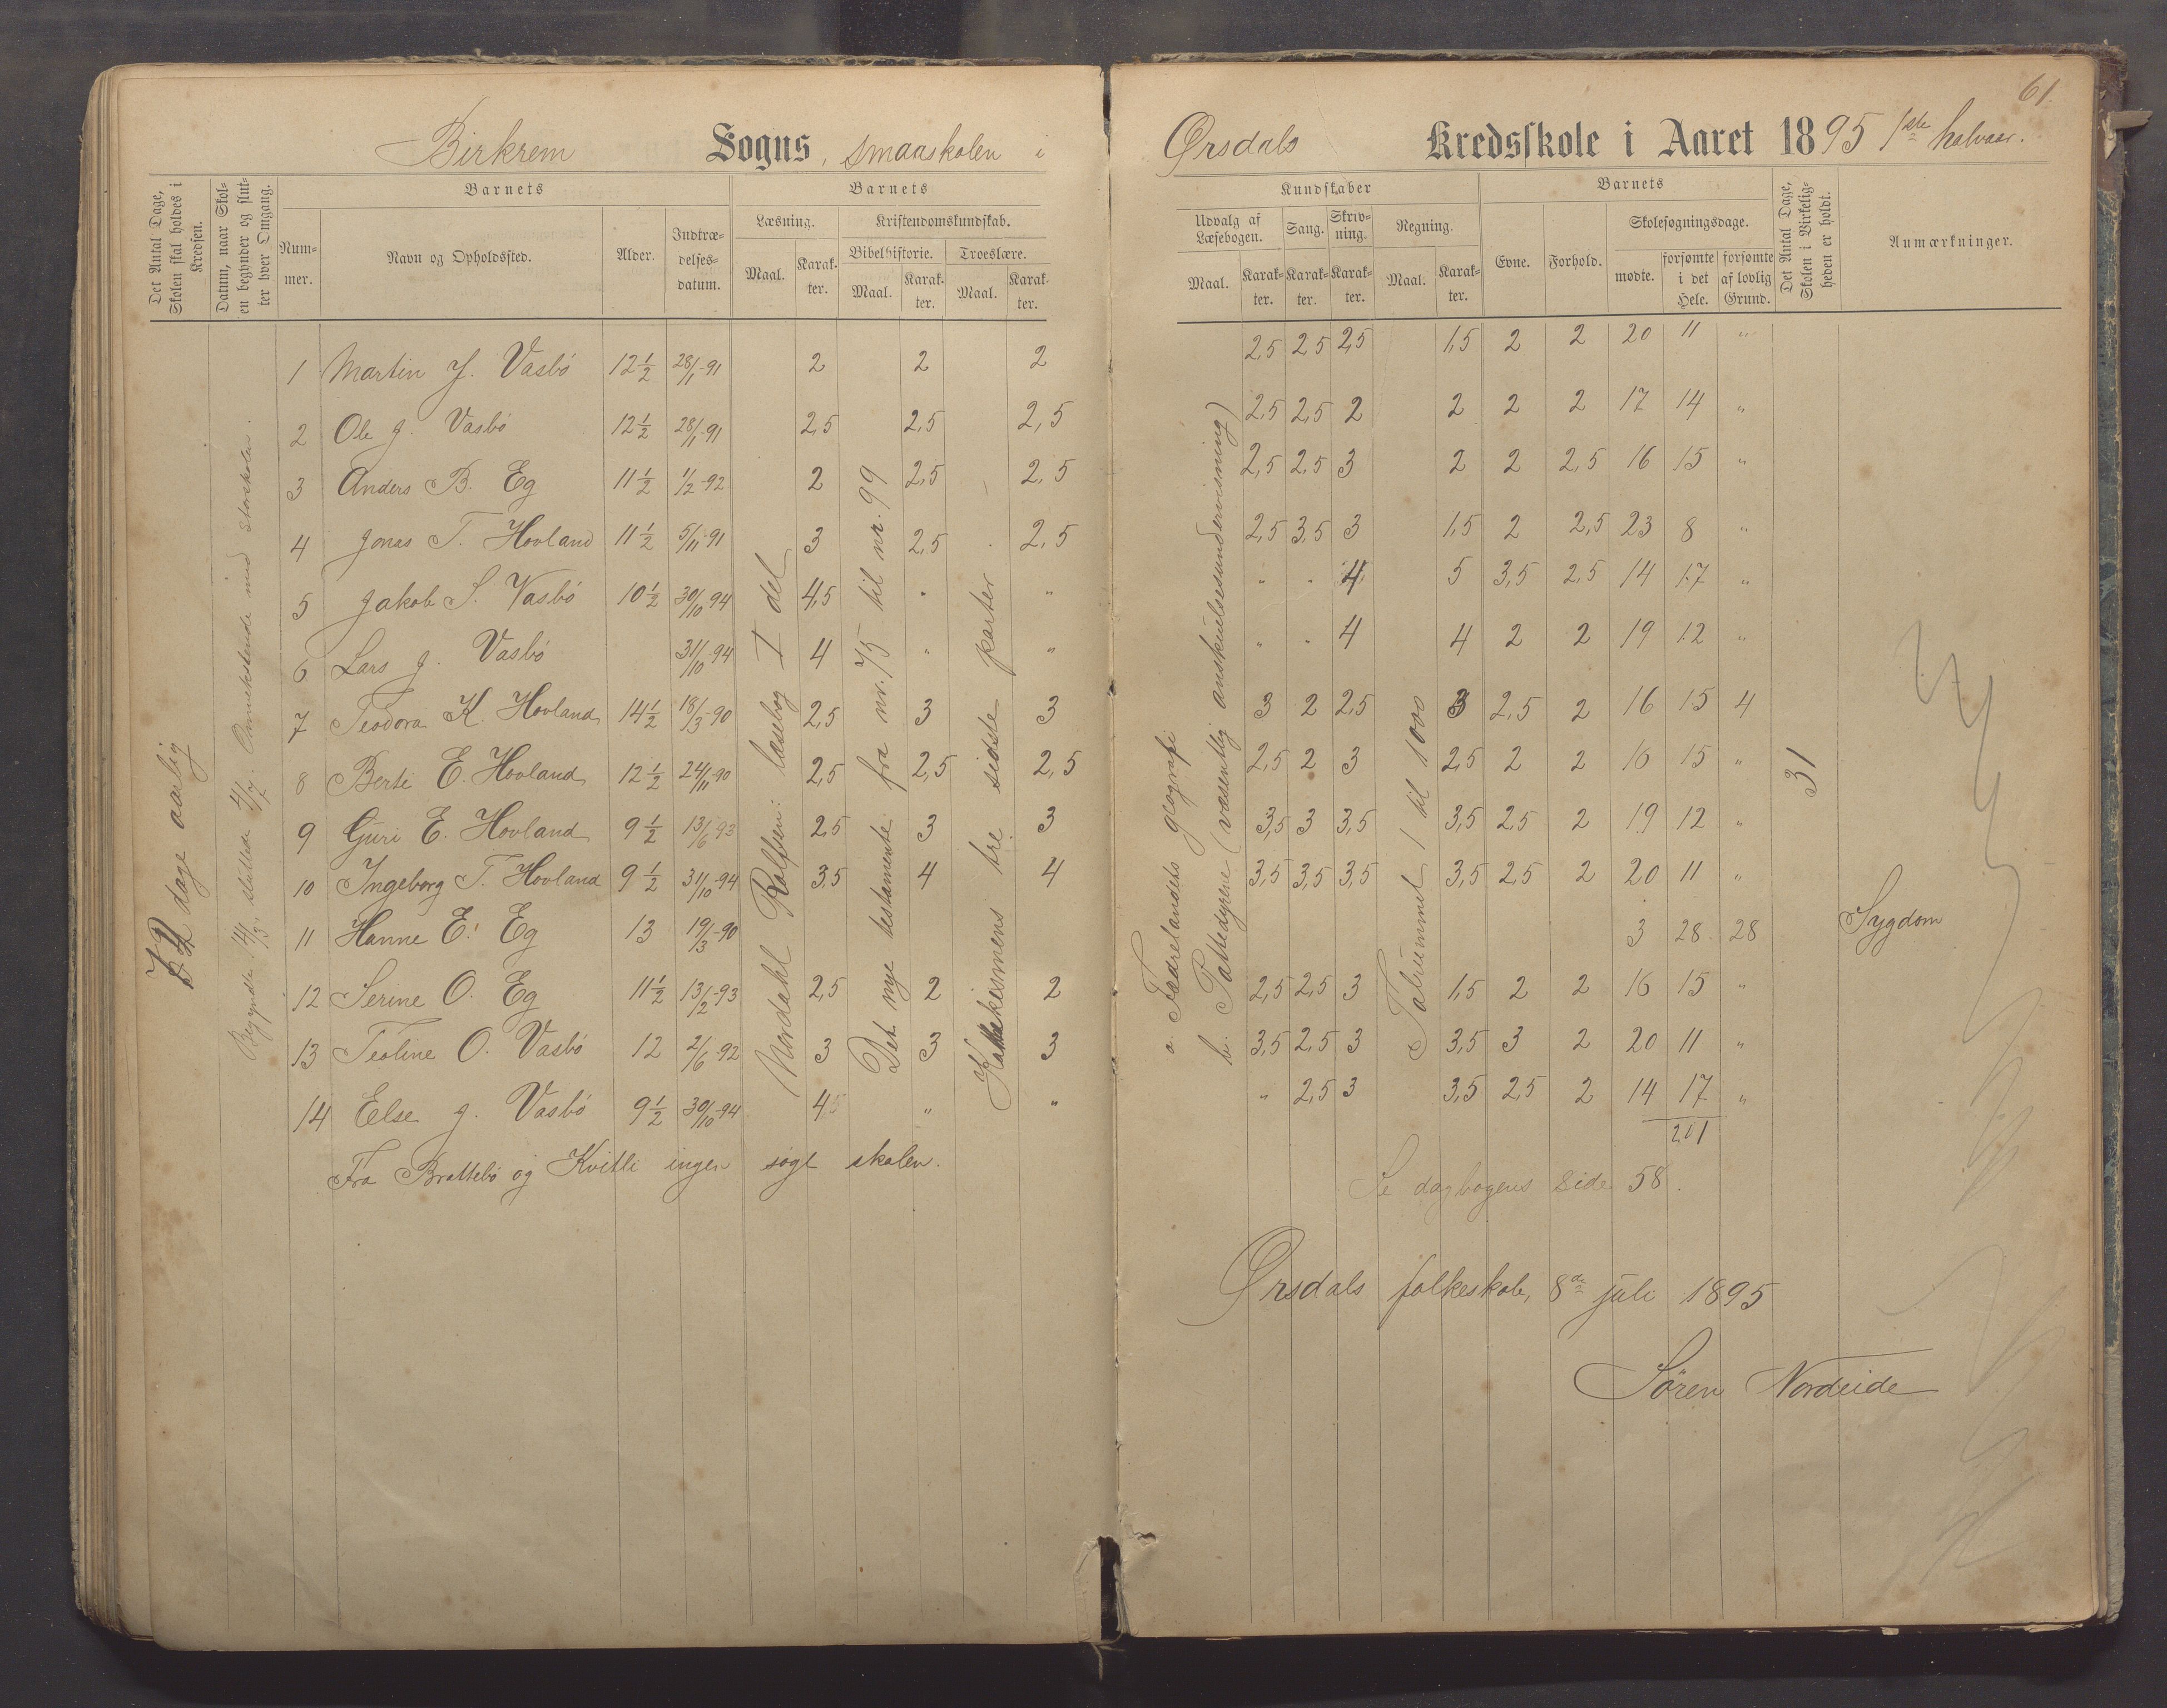 61.
Birkrem Sogns, smaaskolen i Ørsdals Kredsskole i Aaret 1895 1ste halvaar.
Det Antal Dage, Skolen skal holdes i Kredsen.
Datum, naar Skolen begynder og slutter hver Omgang.
Barnets
Nummer.
Navn og Opholdssted.
Alder.
Indtrædelsesdatum.
Barnets
Læsning.
Maal.
Karakter.
Kristendomskundskab.
Bibelhistorie.
Maal.
Karakter.
Troeslære.
Maal.
Karakter.
Kundskaber
Udvalg af Læsebogen.
Maal.
Karakter.
Sang.
Karakter.
Skrivning.
Karakter.
Regning.
Maal.
Karakter.
Barnets
Evne.
Forhold.
Skolesøgningsdage.
mødte.
forsømte i det Hele.
forsømte af lovlig Grund.
Det Antal Dage, Skolen i Virkeligheden er holdt.
Anmærkninger.
dage aarlig
Begyndte 14/3, sluttea 4/7. Annekstende med storskolen.
Nordahl Rolfsen: læsebog I del
Det nye testamente: fra nr. 75 til nr. 99
Katekismens tre sidste parter
a. Fædrelandets geografi
b. Pattedyrene (væsentlig anskuelsesundervisning)
Talrummet 1 til 1000
31
1 Martin J. Vasbö 12½ 28/1-91 2 2 2 2,5 2,5 2,5 1,5 2 2 20 11 "
2 Ole J. Vasbö 12½ 28/1-91 2,5 2,5 2,5 2,5 2,5 2 2 2 2 17 14 "
3 Anders B. Eg 11½ 1/2-92 2 2,5 2,5 2,5 2,5 3 2 2 2,5 16 15 "
4 Jonas T. Hovland 11½ 5/11-91 3 2,5 2,5 2,5 3,5 3 1,5 2 2,5 23 8 "
5 Jakob S. Vasbö 10½ 30/10-94 4,5 " " " " 4 5 3,5 2,5 14 17 "
6 Lars J. Vasbö 31/10-94 4 " " " " 4 4 2 2 19 12 "
7 Teodora K. Hovland 14½ 18/3-90 2,5 3 3 3 2 2,5 3 2,5 2 16 15 4
8 Berte E. Hovland 12½ 24/11-90 2,5 2,5 2,5 2,5 2 3 2,5 2 2 16 15 "
9 Guri E. Hovland 9½ 13/6-93 2,5 3 3 3,5 3 3,5 3,5 2,5 2 19 12 "
10 Ingeborg T. Hovland 9½ 31/10-94 3,5 4 4 3,5 3,5 3,5 3,5 2,5 2 20 11 "
11 Hanne E. Eg 13 19/3-90 3 28 28 Sygdom
12 Serine O. Eg 11½ 13/2-93 2,5 2 2 2,5 2,5 3 1,5 2 2 16 15 "
13 Teoline O. Vasbö 12 2/6-92 3 3 3 3,5 2,5 3 3,5 3 2 20 11 "
14 Else J. Vasbö 9½ 30/10-94 4,5 " " " 2,5 3 3,5 2,5 2 14 17 "
201
Fra Brattebö og Kvitli ingen sögt skolen.
Se dagbogens side 58.
Ørsdals folkeskole, 8de juli 1895
Sören Nordeide